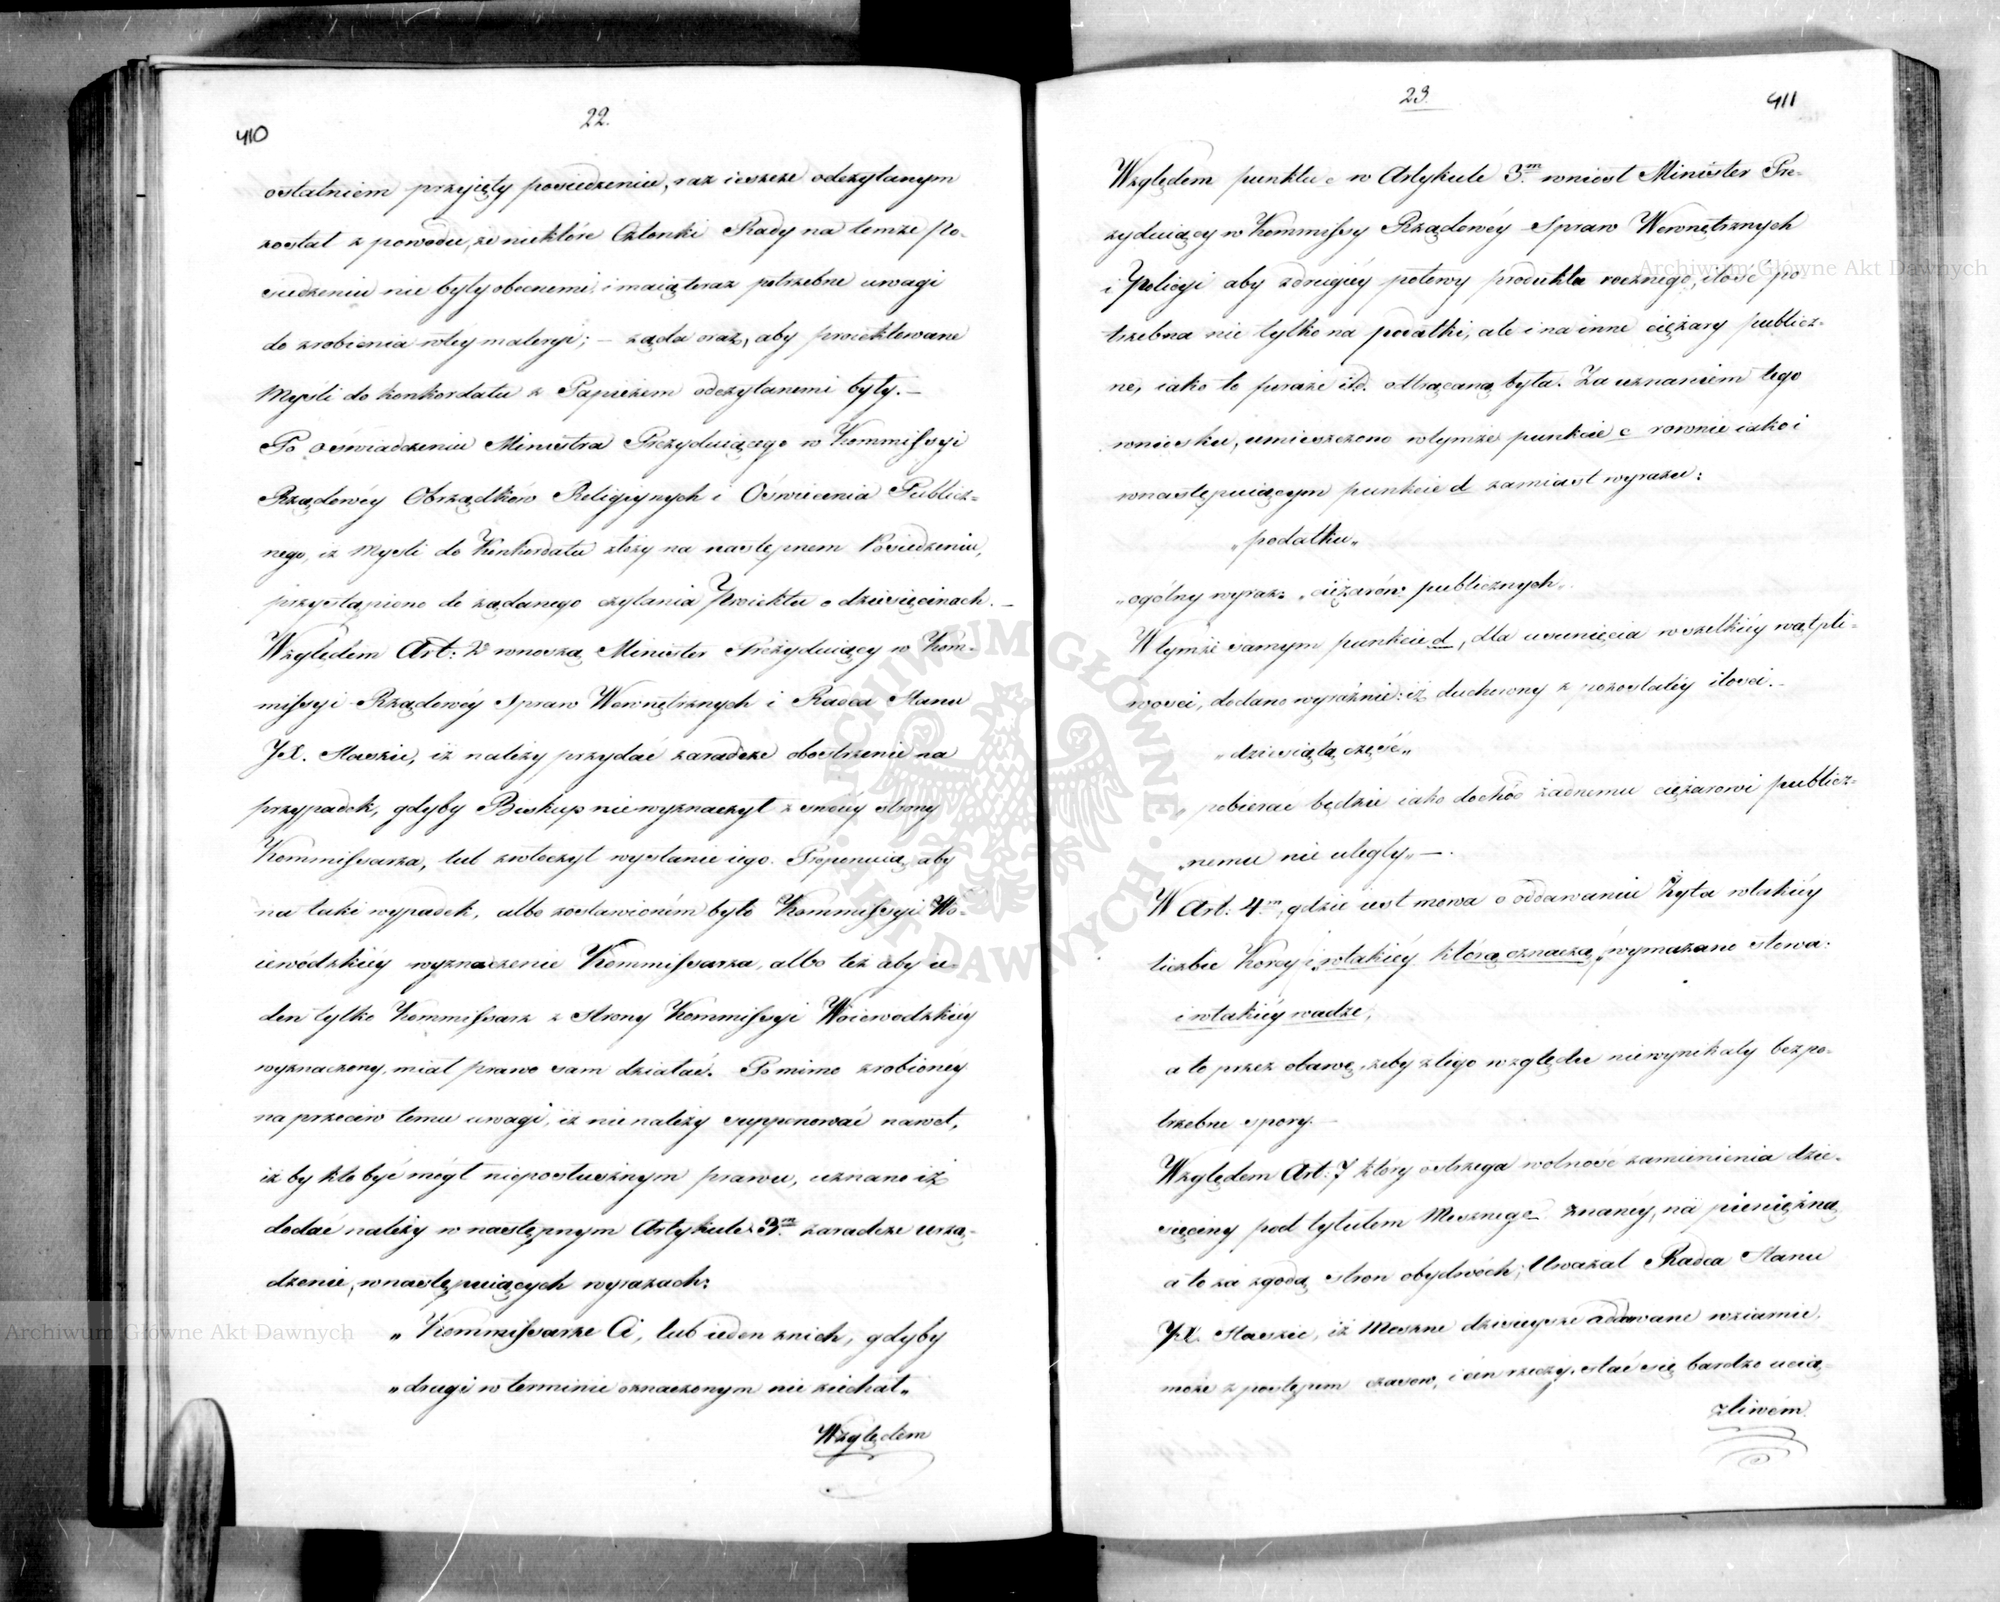 410
22.
ostatniem przyięty posiedzeniu, raz ieszcze odczytanym
został z powodu, że niektóre Członki Rady na temże Po-
siedzeniu nie były obecnemi, i maią teraz potrzebne uwagi
do zrobienia w téy materyi; – żąda oraz, aby proiektowane
Myśli do konkordatu z Papieżem odczytanemi były. –
Po oświadczeniu Ministra Prezyduiącego w Kommissyi
Rządowéy Obrządków Religiynych i Oświecenia Publicz-
nego, iż Myśli do Konkordatu złoży na następnem Posiedzeniu,
przystąpiono do żądanego czytania Proiektu o dziesięcinach. –
Względem Art: 2º wnoszą Minister Prezyduiący w Kom-
missyi Rządowéy Spraw Wewnętrznych i Radca Stanu
JX. Staszic, iż należy przydać zaradcze obostrzenie na
przypadek, gdyby Biskup nie wyznaczył z swéiéy strony
Kommissarza, lub zwłoczył wysłanie iego. Proponuią, aby
na taki wypadek, albo zostawioném było Kommissyi Wo-
iewódzkiéy wyznaczenie Kommissarza, albo też aby ie-
den tylko Kommissarz z strony Kommissyi Woiewodzkiéy
wyznaczony, miał prawo sam działać. Pomimo zrobioney
na przeciw temu uwagi, iż nie należy supponować nawet,
iż by kto być mógł nieposłusznym prawu, uznano iż
dodać należy w następnym Artykule 3.m zaradcze urzą-
dzenie, w następuiących wyrazach:
„Kommissarze Ci, lub ieden z nich, gdyby
„drugi w terminie oznaczonym nie ziechał„
Względem
23.
411
Względem punktu c w Artykule 3.m wniosł Minister Pre-
zyduiący w Kommissy Rządowéy Spraw Wewnętrznych
i Policyi aby z drugiéy połowy produktu rocznego, ilość po-
trzebna nie tylko na podatki, ale i na inne ciężary publicz-
ne, iako to furaże itd. odtrącaną była. Za uznaniem tego
wniosku, umieszczono w tymże punkcie c równie iako i
w następuiącym punkcie d zamiast wyrazu:
„podatku„
„ogólny wyraz: „ciężarów publicznych„.
W tymże samym punkcie d, dla usunięcia wszelkiéy wątpli-
wosci, dodano wyraźnie: iż duchowny z pozostałéy ilosci. –
„dziesiątą część„
„pobierać będzie iako dochód żadnemu ciężarowi publicz-
„nemu nie uległy„ –.
W Art: 4.m, gdzie iest mowa o oddawaniu Żyta w takiéy
liczbie Korcy i „w takiéy którą oznaczą,„ wymazano słowa:
i w takiéy wadze,
a to przez obawę, żeby z tego względu nie wynikały bezpo-
trzebne spory. –
Względem Art: 7 który ostrzega wolność zamienienia dzie-
sięciny pod tytułem Mesznego znanéy, na pieniężną
a to za zgodą stron obydwóch; Uważał Radca Stanu
JX. Staszic, iż Meszne dzisieysze oddawane w ziarnie,
może z postępem czasów, i cen rzeczy, stać się bardzo ucią-
żliwém.
Archiwum Główne Akt Dawnych
Archiwum Główne Akt Dawnych
ARCHIWUM GŁÓWNE AKT DAWNYCH